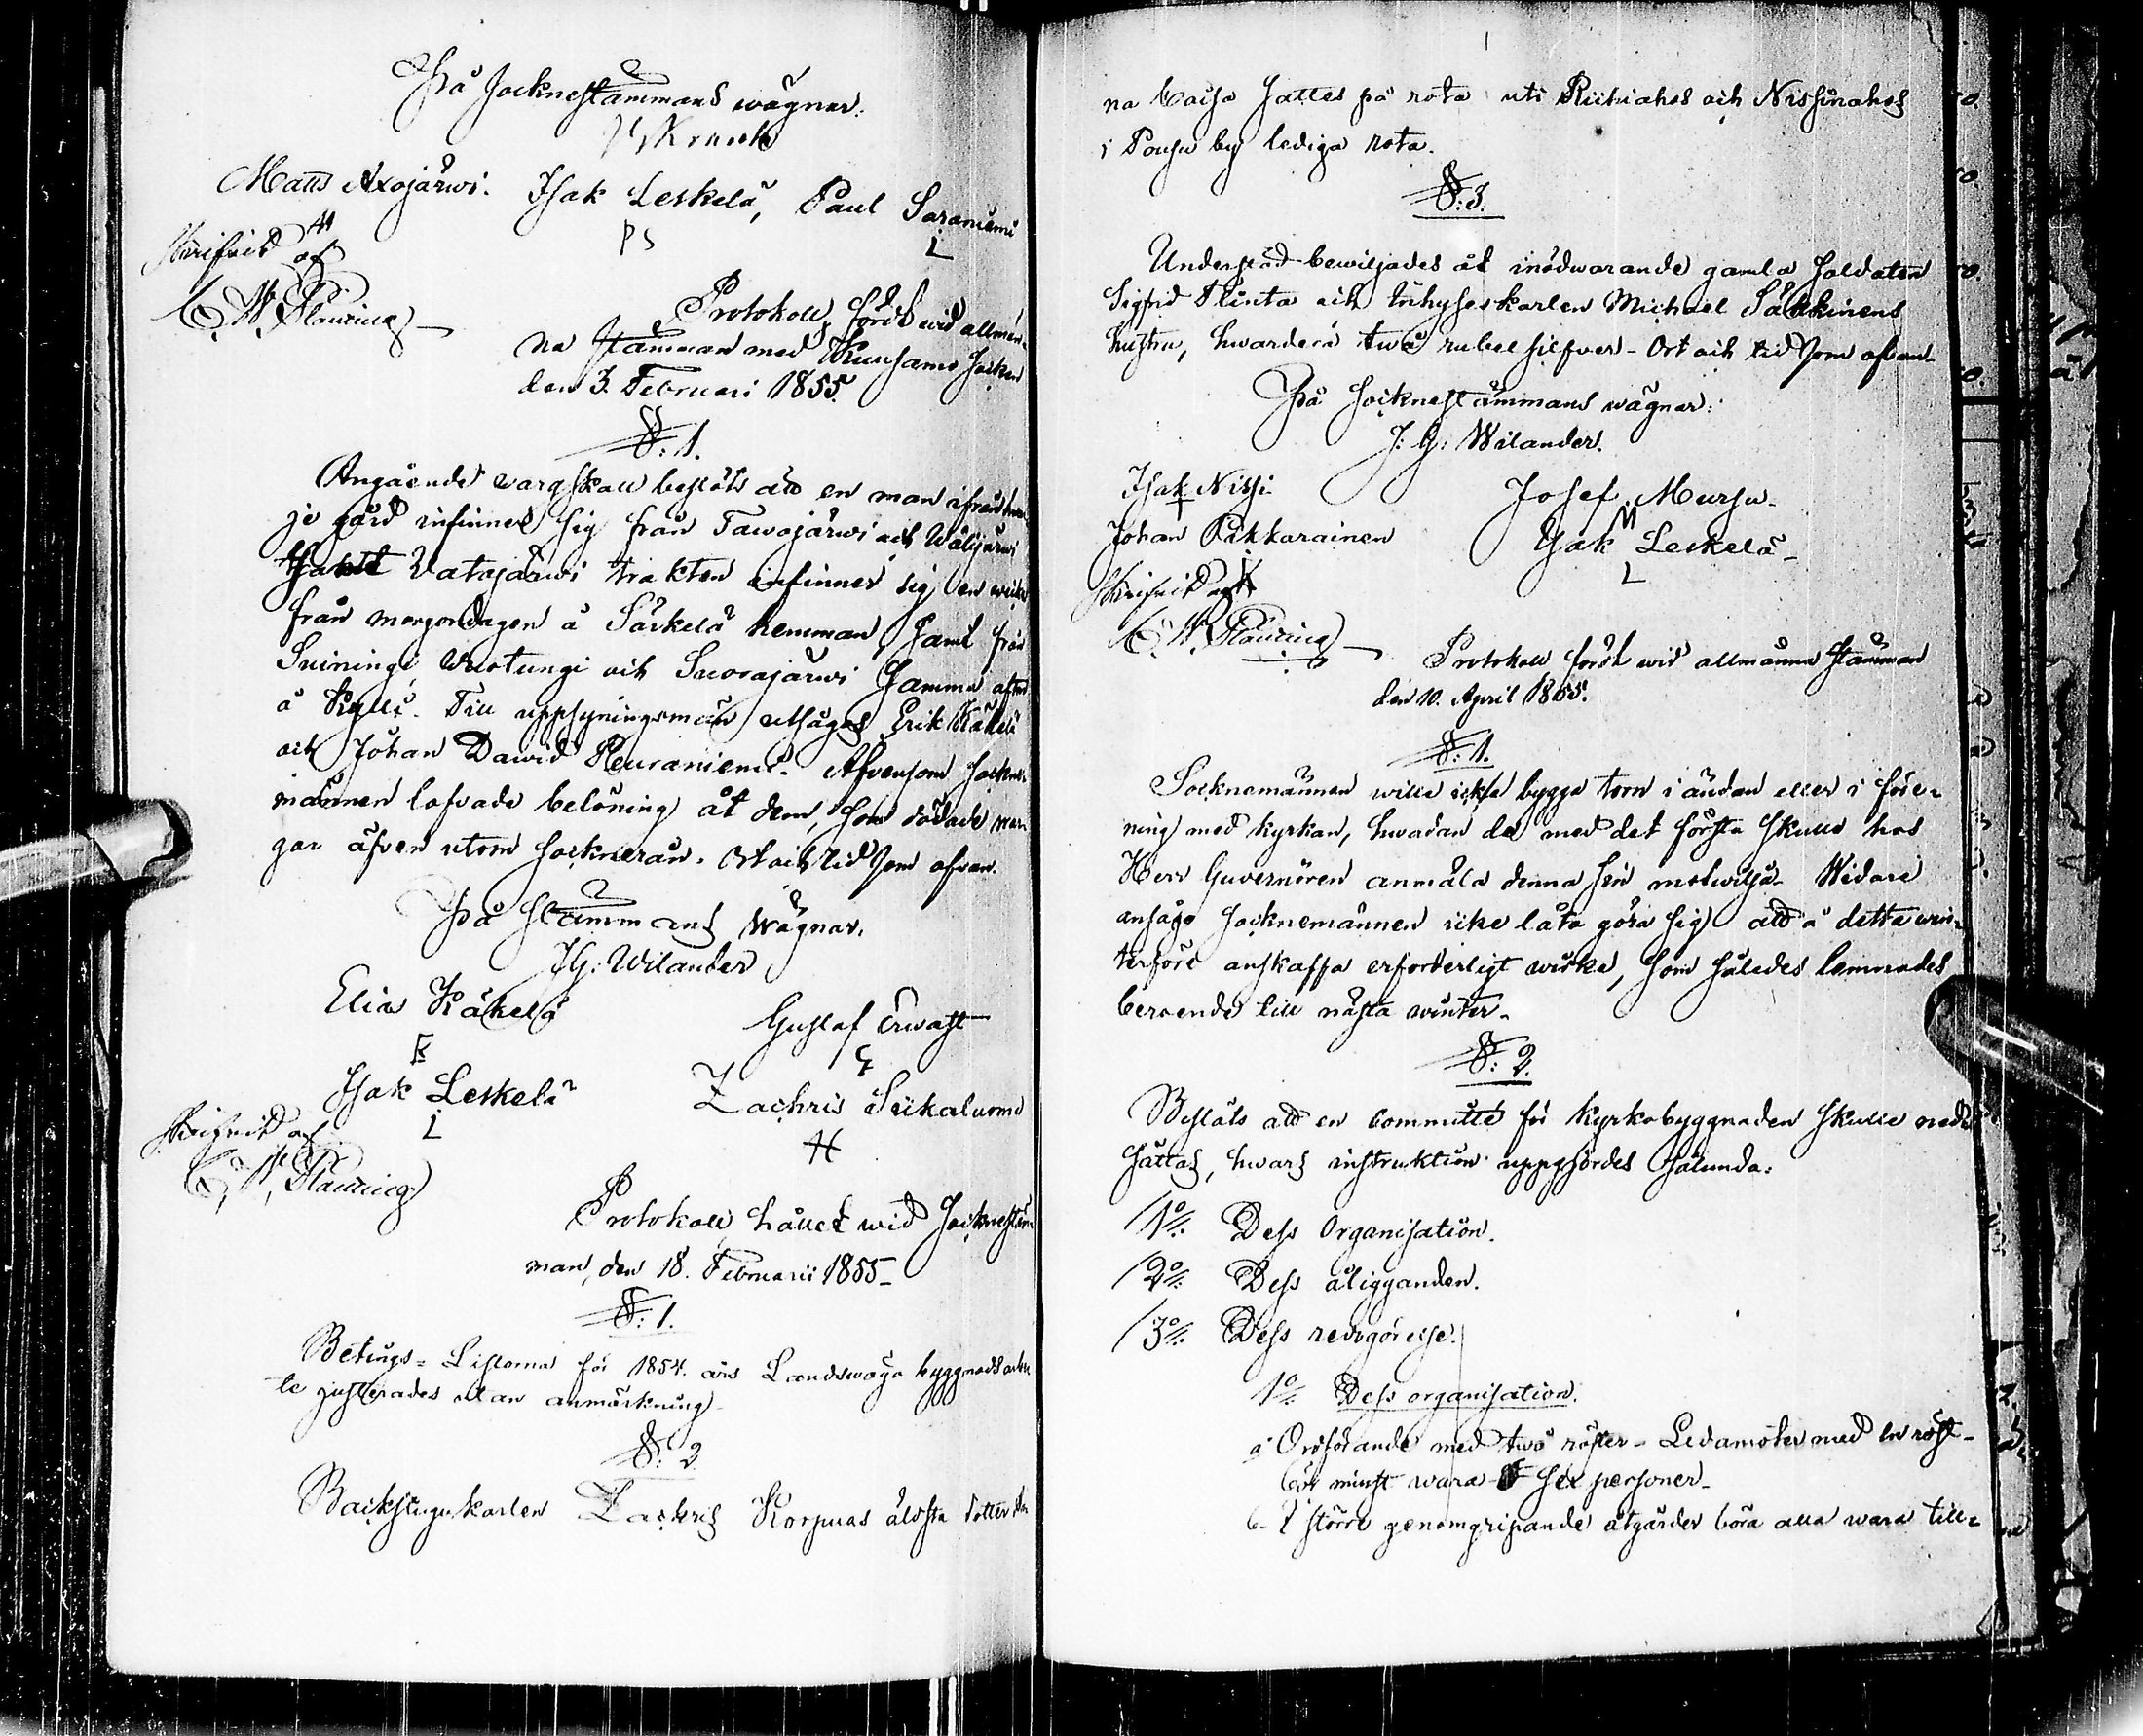 På Socknestämmans wägnar:
Matts Axojärwi. Isak Leskelä, Paul Saraniemi
M PS L
Skrifvit af
C. W. Planting
Protokoll, fördt wid allmän-
na Stämman med Kuusamo Socken
den 3. Februari 1855.
§: 1.
Angående vargskall beslöts att en man ifrån hwar-
je gård infinner sig från Tawajärwi och Wäljärwi
samt Vatajärwi trakten infinner sig en wecka
från morgondagen å Särkelä hemman samt från
Suiningi, Wuotungi och Suorajärwi samma afton
å Kylli. Till uppsyningsmän utsågos Erik Käkelä
och Johan Dawid Heuraniemi. Äfvensom Sockne-
männen lofvade belöning åt dem, som dödade war-
gar äfven utom socknerån. Ort och tid som ofvan.
På Stämmans wägnar.
J G: Wilander
Elias Käkelä Gustaf Erwast
E G
Isak Leskelä Zachris Siikaluoma
L H
Skrifvit af
C. W. Planting
Protokoll, hållet wid Socknestäm-
man, den 18. Februarii 1855-
§: 1.
Betings-Listorna för 1854. års Landswägs byggnadsarbe-
te justerades utan anmärkning
§: 2
Backstugukarlen Zachris Korpuas äldsta dotter
na Caisa sattes på rota uti Riitiahos och Nissinahos
i Pousu by lediga rota.
§: 3.
Understöd bewiljades åt inödwarande gamla Soldaten
Sigfrid Flinta och inhyseskarlen Michael Säkkinens
hustru, hwardera twå rubel silfver- Ort och tid som ofvan-
På Socknestämmans wägnar:
J: G: Wilander.
Isak Nissi Josef Mursu-
Johan Pakkarainen Isak Leskelä-
L
Skrifvit af
C. W. Planting
Protokoll fördt wid allmänna Stämman
den 10. April 1855.
§: 1.
Socknemännen wille icke bygga torn i ändan eller i före-
ning med kyrkan, hwadan de med det första skulle hos
Herr Guvernören anmäla denna sin motwilja- Widare
ansågo Socknemännen icke låta göra sig att å detta win-
terföre anskaffa erforderligt wirke, som således lemnades
beroende till nästa winter-
§: 2.
Beslöts att en Committé för kyrkobyggnaden skulle ned-
sättas, hwars instruktion uppgjordes sålunda:
1o/: Dess Organisation.
2o/: Dess åligganden.
3o/: Dess redogörelse.
1o/: Dess organisation.
a Ordförande med twå röster- Ledamöter med en röst-
bör minst wara sex personer-
b- I större genomgripande åtgärder böra alla wara till-